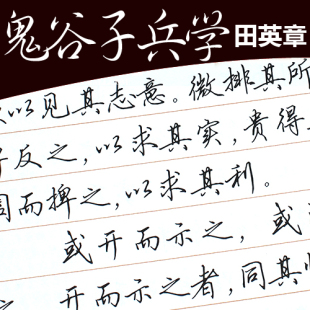 鬼谷子兵学 田英章
以见其志意。微排其所
反之，以求其实，贵得
而捭之，以求其利。
或开而示之，或
开而示之者，同其